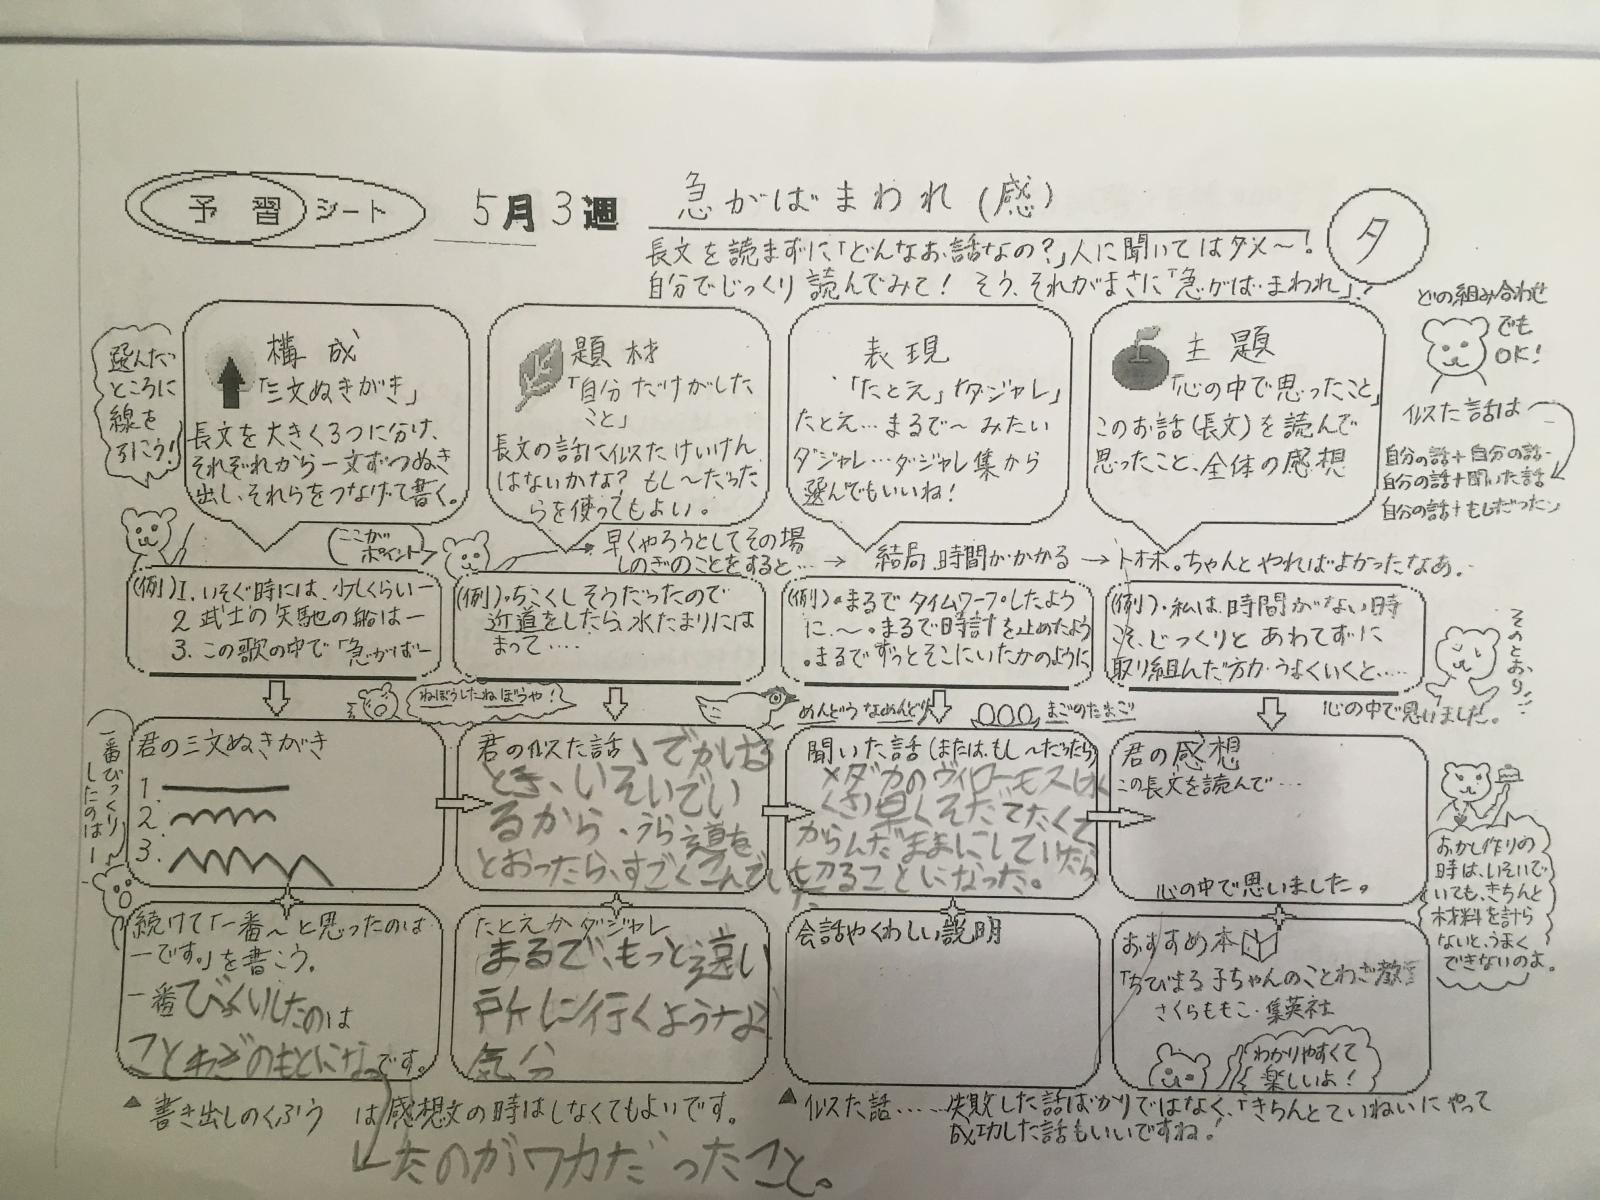 予習シート 5月3週 急がばまわれ(感)
タ
長文を読まずに「どんなお話なの?」人に聞いてはダメ〜!
自分でじっくり読んでみて! そう、それがまさに「急がばまわれ」!
選んだ
ところに
線を
引こう!
構成
「三文ぬきがき」
長文を大きく3つに分け、
それぞれから一文ずつぬき
出し、それらをつなげて書く。
題材
「自分だけがした
こと」
長文の話に似たけいけん
はないかな? もし〜だった
らを使ってもよい。
表現
「たとえ」「ダジャレ」
たとえ…まるで〜みたい
ダジャレ…ダジャレ集から
選んでもいいね!
主題
「心の中で思ったこと」
このお話(長文)を読んで
思ったこと、全体の感想
どの組み合わせ
でも
OK!
似た話は
自分の話+自分の話
自分の話+聞いた話
自分の話+もしだったら
ここが
ポイント
早くやろうとしてその場
しのぎのことをすると…
→ 結局、時間がかかる → トホホ。ちゃんとやればよかったなあ。
(例)1. いそぐ時には、少しくらいー
2. 武士の矢馳の船はー
3. この歌の中で「急がばー
(例)・ちこくしそうだったので
近道をしたら、水たまりには
まって……
(例)・まるでタイムワープしたよう
に、〜。・まるで時計を止めたよう
・まるでずっとそこにいたかのように
(例)・私は、時間がない時
こそ、じっくりとあわてずに
取り組んだ方が、うまくいくと……
心の中で思いました。
そのとおり!!
ねぼうしたねぼうや!
めんどうなめんどり
まごのたまご
一番びっくり
したのはー
君の三文ぬきがき
1.
2.
3.
君の似た話、でかける
とき、いそいでい
るから、うら道を
とおったら、すごくこんでいた
聞いた話(または、もし〜だったら)
メダカのヴィローモスはく
くさり早くそだてたくて
からんだままにしていたら
切ることになった。
君の感想
この長文を読んで…
心の中で思いました。
おかし作りの
時は、いそいで
いても、きちんと
材料を計ら
ないと、うまく
できないのよ。
続けて「一番〜と思ったのは
ーです。」を書こう。
一番びっくりしたのは
ことわざのもとになっです。
たとえかダジャレ
まるで、もっと遠い
所に行くような
気分
会話やくわしい説明
おすすめ本
「ちびまる子ちゃんのことわざ教室
さくらももこ・集英社
わかりやすくて
楽しいよ!
▲書き出しのくふう は感想文の時はしなくてもよいです。
▲似た話……失敗した話ばかりではなく、「きちんとていねいにやって
成功した話もいいですね!
たのがワカだったこと。